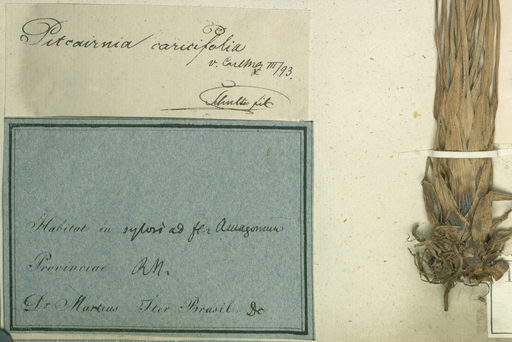 Pitcairnia caricifolia
III/93.
Habitat in sylvis ad fl: Amazonum
Provinciae R.N.
Dr. Martius Iter Brasil. Dc